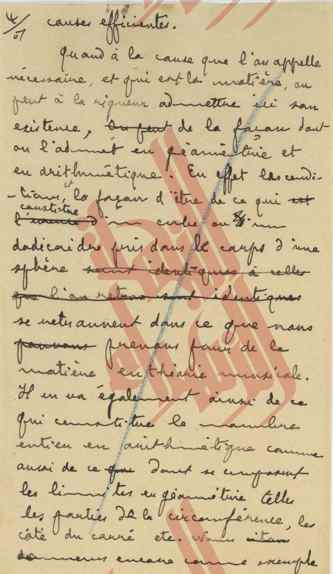 causes efficientes.
Quand à la cause que l'on appelle
nécessaire, et qui est la matière, on
peut à la rigueur admettre ici son
existence, de la façon dont
on l'admet en géométrie et
en arithmétique. En effet les condi-
-tions, la façon d'être de ce qui est
constitue d'un cube ou d'un
dodécaèdre pris dans le corps d'une
sphère sont identiques à celles
que l'on retrouve sont identiques
se retrouvent dans ce que nous
pouvons prenons pour de la
matière en théorie musicale.
Il en va également ainsi de ce
qui constitue le nombre
entier en arithmétique comme
aussi de ce que dont se composent
les limites en géométrie telles
les parties de la circonférence, les
côté du carré etc. Nous
encore comme exemple